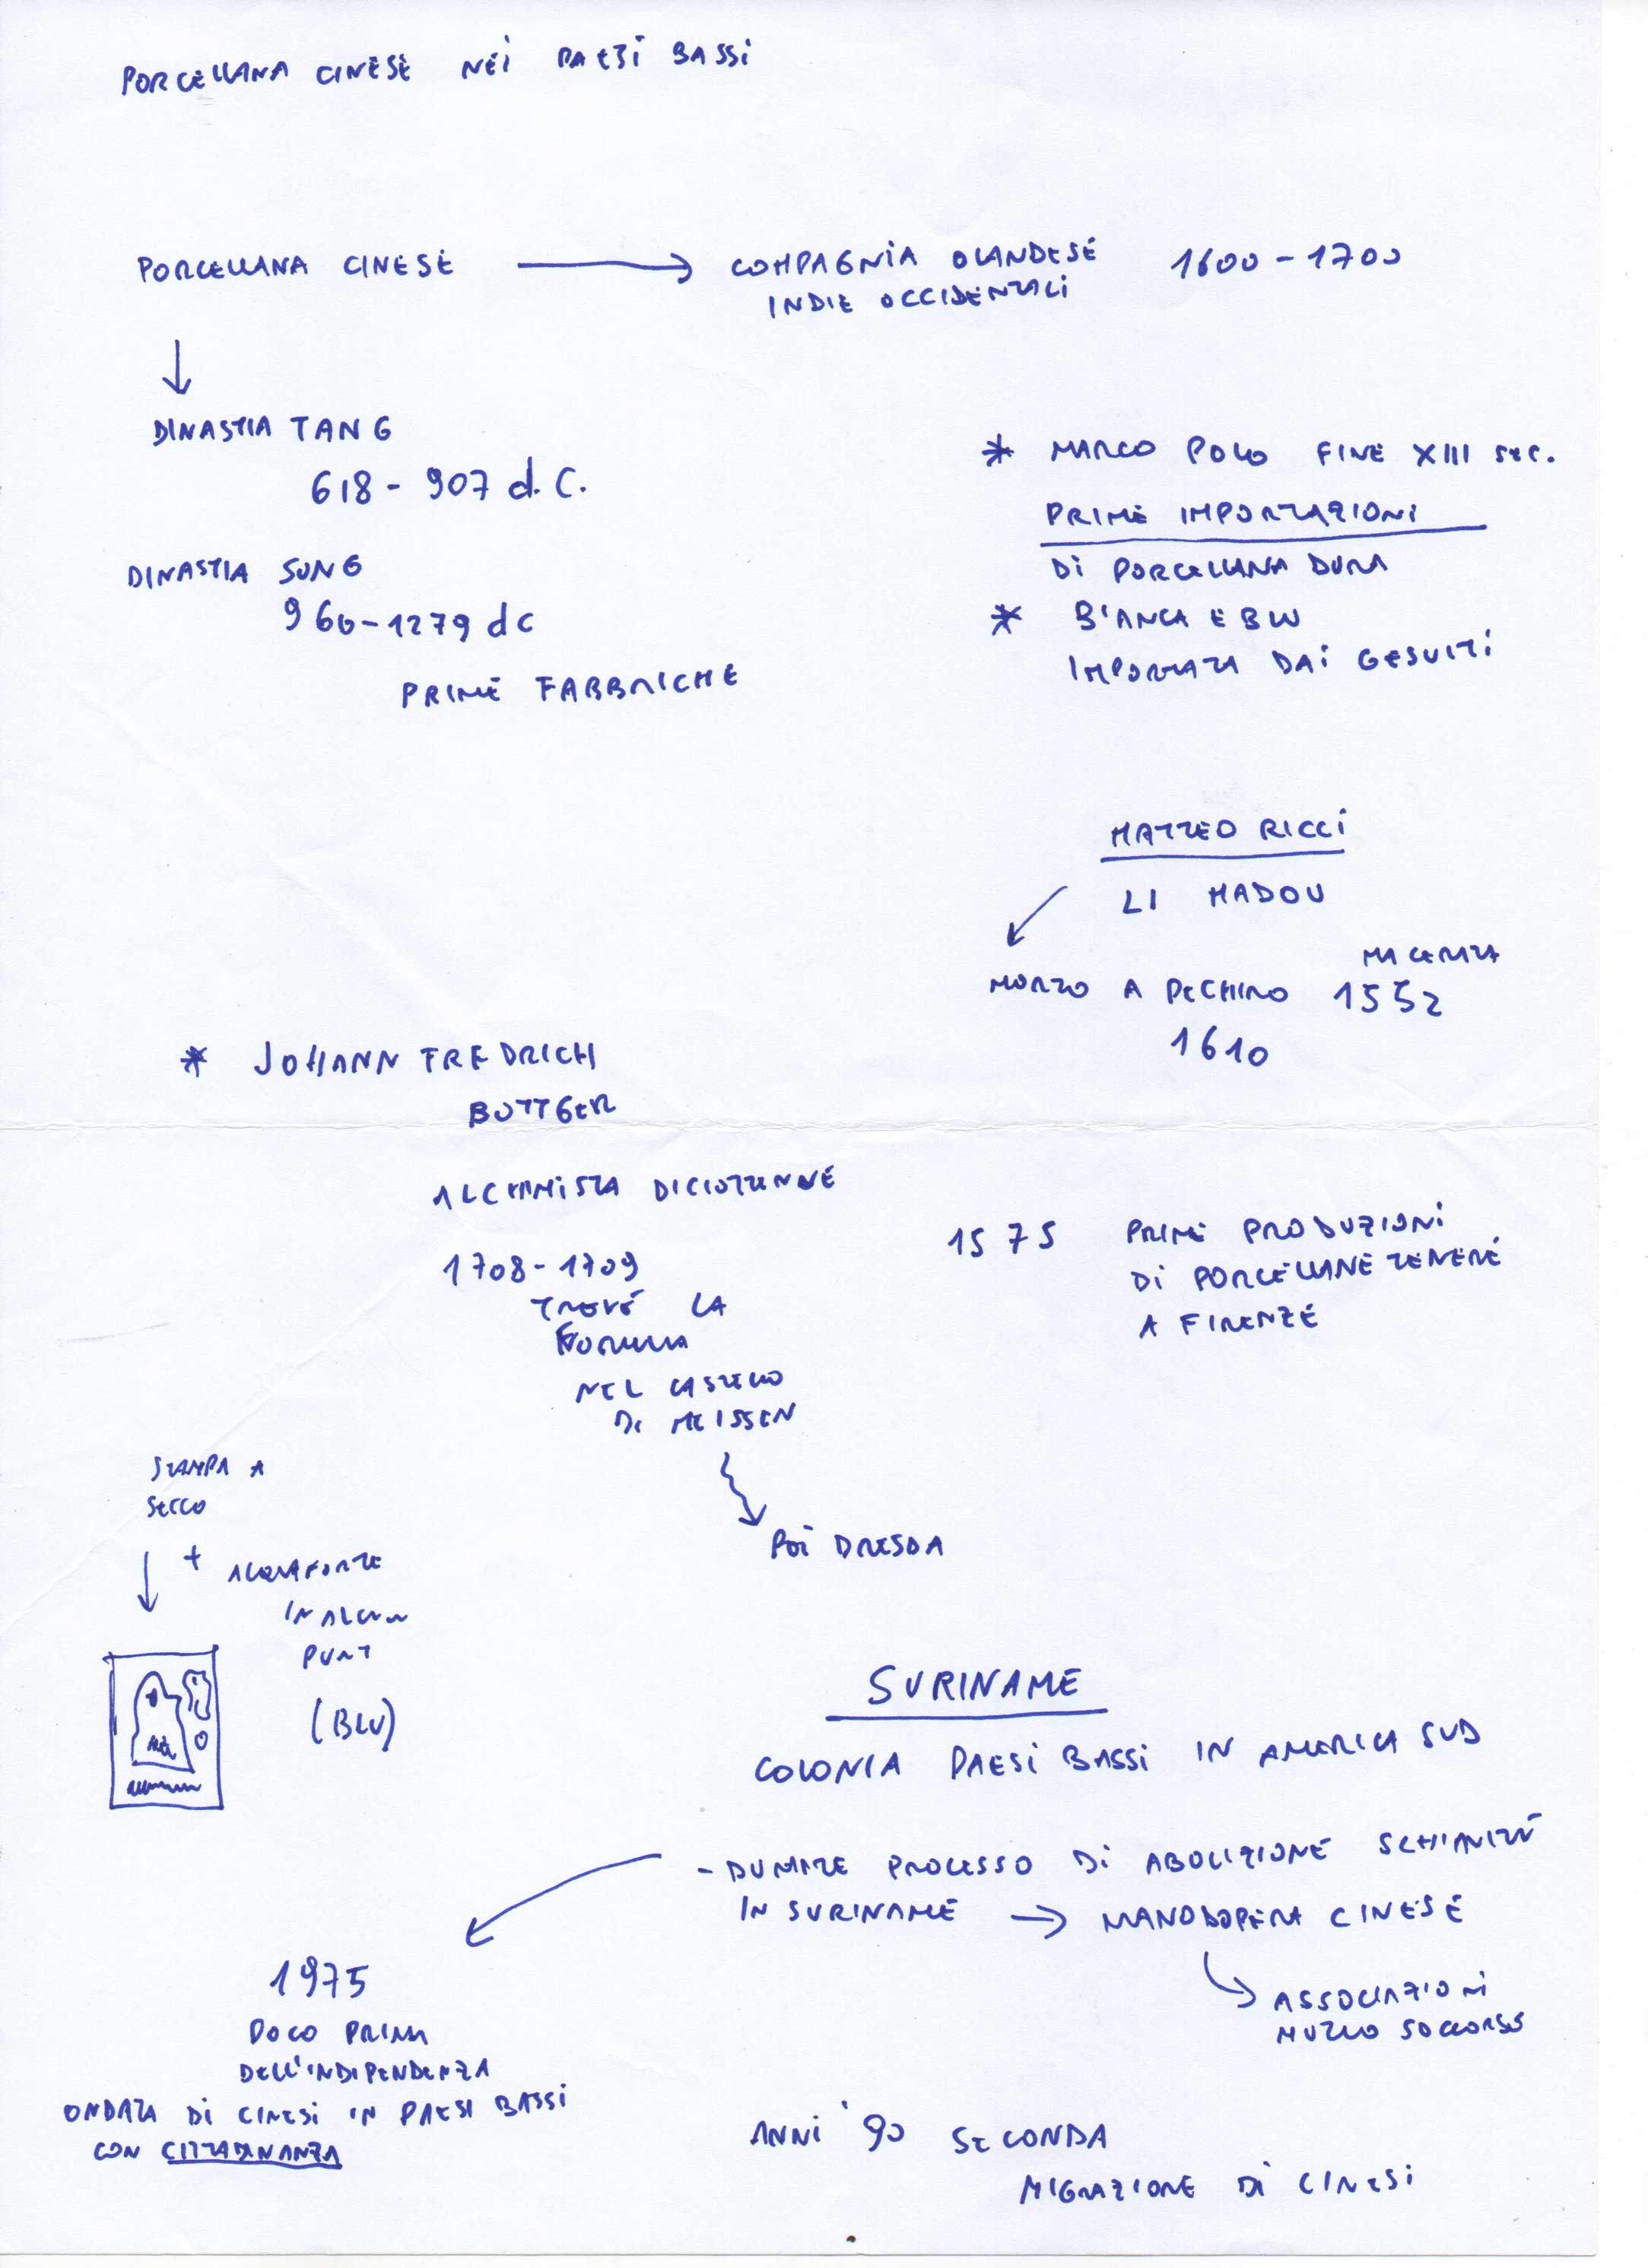 PORCELLANA CINESE NEI PAESI BASSI
PORCELLANA CINESE → COMPAGNIA OLANDESE 1600-1700
INDIE OCCIDENTALI
DINASTIA TANG
618-907 d.C.
DINASTIA SUNG
960-1279 dc
PRIME FABBRICHE
* MARCO POLO FINE XIII SEC.
PRIME IMPORTAZIONI
DI PORCELLANA DURA
* BIANCA E BLU
IMPORTATA DAI GESUITI
MATTEO RICCI
LI MADOU
MACERATA
MORTO A PECHINO 1552
1610
* JOHANN FREDRICH
BOTTGER
ALCHIMISTA DICIOTTENNE
1708-1709
TROVÒ LA
FORMULA
NEL CASTELLO
DI MEISSEN
POI DRESDA
1575 PRIME PRODUZIONI
DI PORCELLANE TENERE
A FIRENZE
STAMPA A
SECCO
+ ACQUAFORTE
IN ALCUNI
PUNTI
(BLU)
SURINAME
COLONIA PAESI BASSI IN AMERICA SUD
- DURANTE PROCESSO DI ABOLIZIONE SCHIAVITÙ
IN SURINAME → MANODOPERA CINESE
ASSOCIAZIONI
MUTUO SOCCORSO
1975
POCO PRIMA
DELL'INDIPENDENZA
ONDATA DI CINESI IN PAESI BASSI
CON CITTADINANZA
ANNI '90 SECONDA
MIGRAZIONE DI CINESI